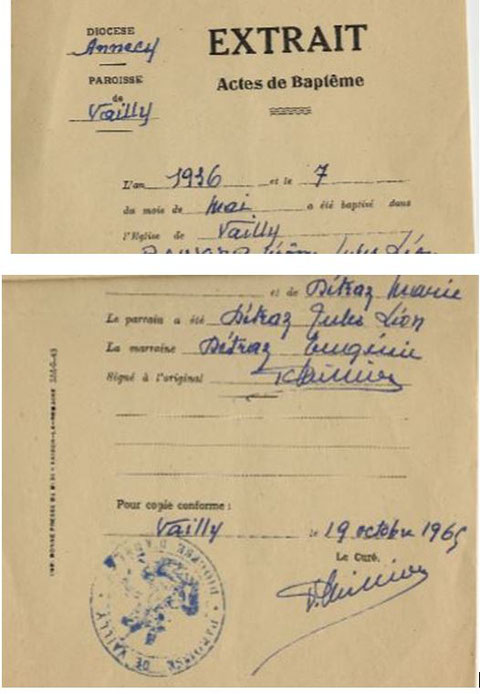 DIOCESE
Annecy
PAROISSE
de
Vailly
EXTRAIT
Actes de Baptême
L'an 1936 et le 7
du mois de Mai a été baptisé dans
l'Eglise de Vailly
Jules Léon
et de Détraz Marie
Le parrain a été Détraz Jules Léon
La marraine Détraz Eugénie
Signé à l'original
Pour copie conforme :
Vailly le 19 octobre 1965
Le Curé,
PAROISSE DE VAILLY
DIOCÈSE D'ANNECY